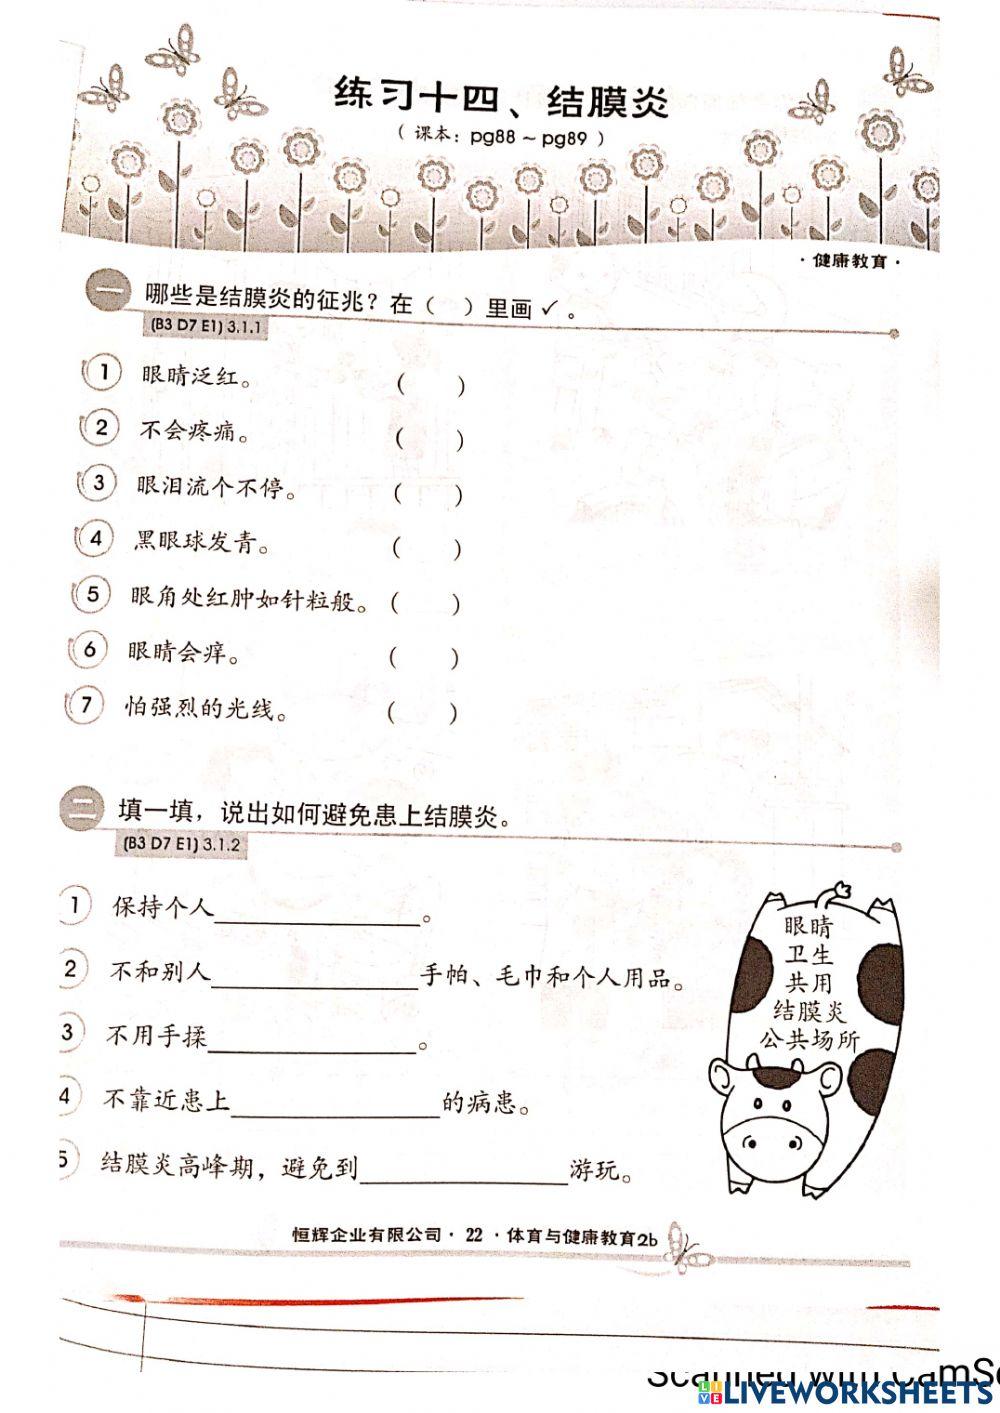 练习十四、结膜炎
（ 课本：pg88 ~ pg89 ）
·健康教育·
一 哪些是结膜炎的征兆？在（ ）里画✓。
(B3 D7 E1) 3.1.1
1 眼睛泛红。 ( )
2 不会疼痛。 ( )
3 眼泪流个不停。 ( )
4 黑眼球发青。 ( )
5 眼角处红肿如针粒般。 ( )
6 眼睛会痒。 ( )
7 怕强烈的光线。 ( )
二 填一填，说出如何避免患上结膜炎。
(B3 D7 E1) 3.1.2
1 保持个人____________。
2 不和别人____________手帕、毛巾和个人用品。
3 不用手揉____________。
4 不靠近患上____________的病患。
5 结膜炎高峰期，避免到____________游玩。
眼睛
卫生
共用
结膜炎
公共场所
恒辉企业有限公司· 22 ·体育与健康教育2b
Scanned with CamSc
LIVEWORKSHEETS